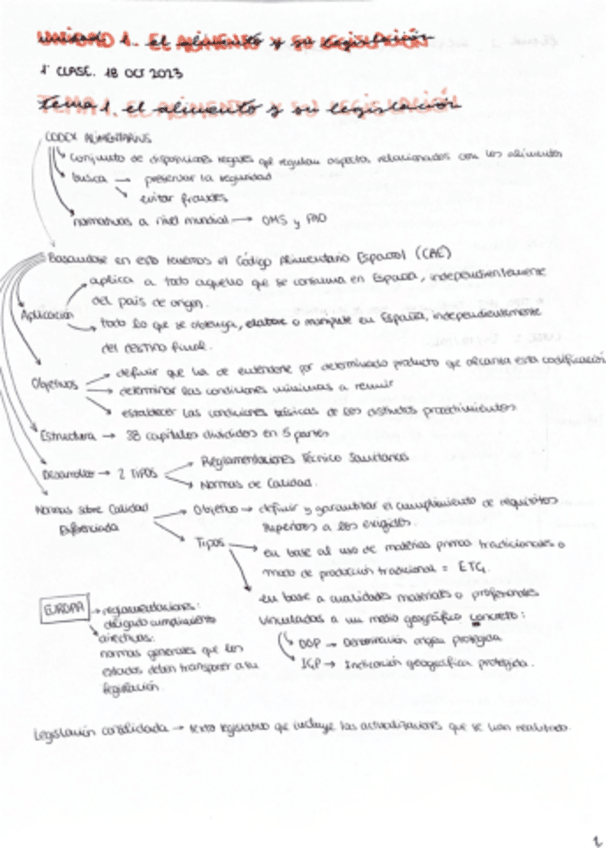 UNIDAD 1. EL ALIMENTO Y SU LEGISLACIÓN
1ª CLASE. 18 OCT 2023
TEMA 1. EL ALIMENTO Y SU LEGISLACIÓN
CODEX ALIMENTARIUS
conjunto de disposiciones legales que regulan aspectos relacionados con los alimentos
busca → preservar la seguridad
evitar fraudes
normativas a nivel mundial → OMS y FAO
Basandose en esto tenemos el Código Alimentario Español (CAE)
aplica a todo aquello que se consuma en España, independientemente
del país de origen.
Aplicación
todo lo que se obtenga, elabore o manipule en España, independientemente
del destino final.
definir que ha de entenderse por determinado producto que alcanza esta codificación
Objetivos → determinar las condiciones mínimas a reunir
establecer las condiciones básicas de los distintos procedimientos
Estructura → 38 capítulos divididos en 5 partes
Reglamentaciones Técnico Sanitarias
Desarrollo → 2 TIPOS
Normas de Calidad.
Normas sobre Calidad → Objetivo → definir y garantizar el cumplimiento de requisitos
Diferenciada superiores a los exigidos.
Tipos → en base al uso de materias primas tradicionales o
modo de producción tradicional = ETG.
en base a cualidades materiales o profesionales
EUROPA → reglamentaciones: vinculadas a un medio geográfico concreto:
obligado cumplimiento
directivas: DOP → Denominación origen protegida
normas generales que los
estados deben transponer a su IGP → Indicación geográfica protegida.
legislación.
Legislación consolidada → texto legislativo que incluye las actualizaciones que se han realizado.
1